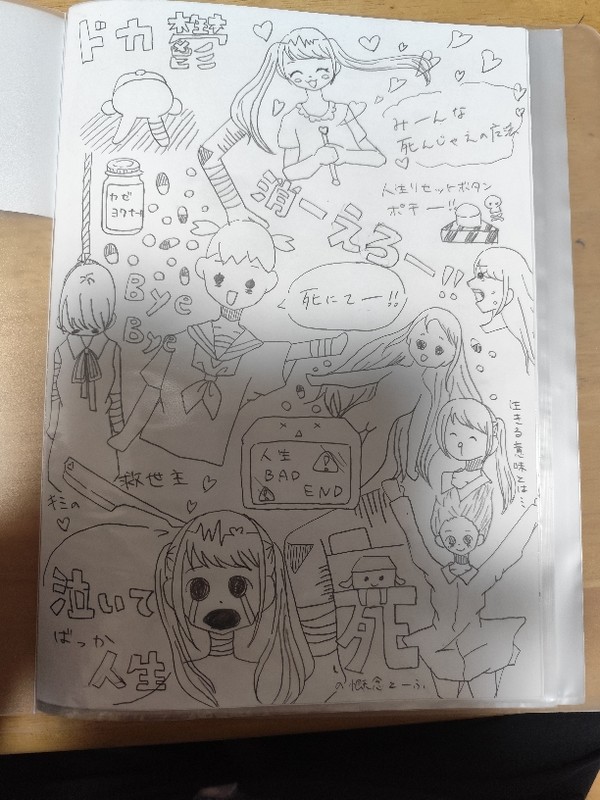 ドカ鬱
みーんな
死んじゃえの広場
人生リセットボタン
ポチー!!
カゼ
ヨクナール
消ーえろー!!
Bye
Bye
死にてー!!
生きる意味とは…
人生
BAD
END
救世主
キミの
泣いて
ばっか
人生
死
の概念とーふ